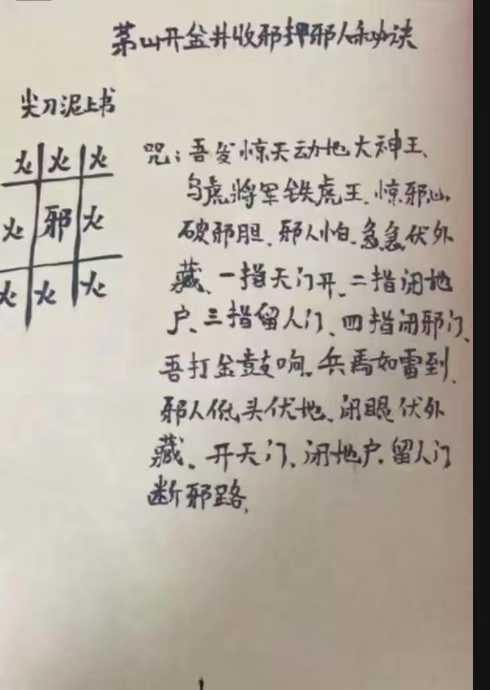 茅山开金井收邪押邪人和功诀
尖刀泥上书
火 火 火
火 邪 火
火 火 火
咒：吾发惊天动地大神王、
乌虎將军铁虎王、惊邪山、
破邪胆、邪人怕、急急伏外
藏、一指天门开、二指闭地
户、三指留人门、四指闭邪门、
吾打金鼓响、兵馬如雷到、
邪人低头伏地、闭眼伏外
藏、开天门、闭地户、留人门
断邪路、